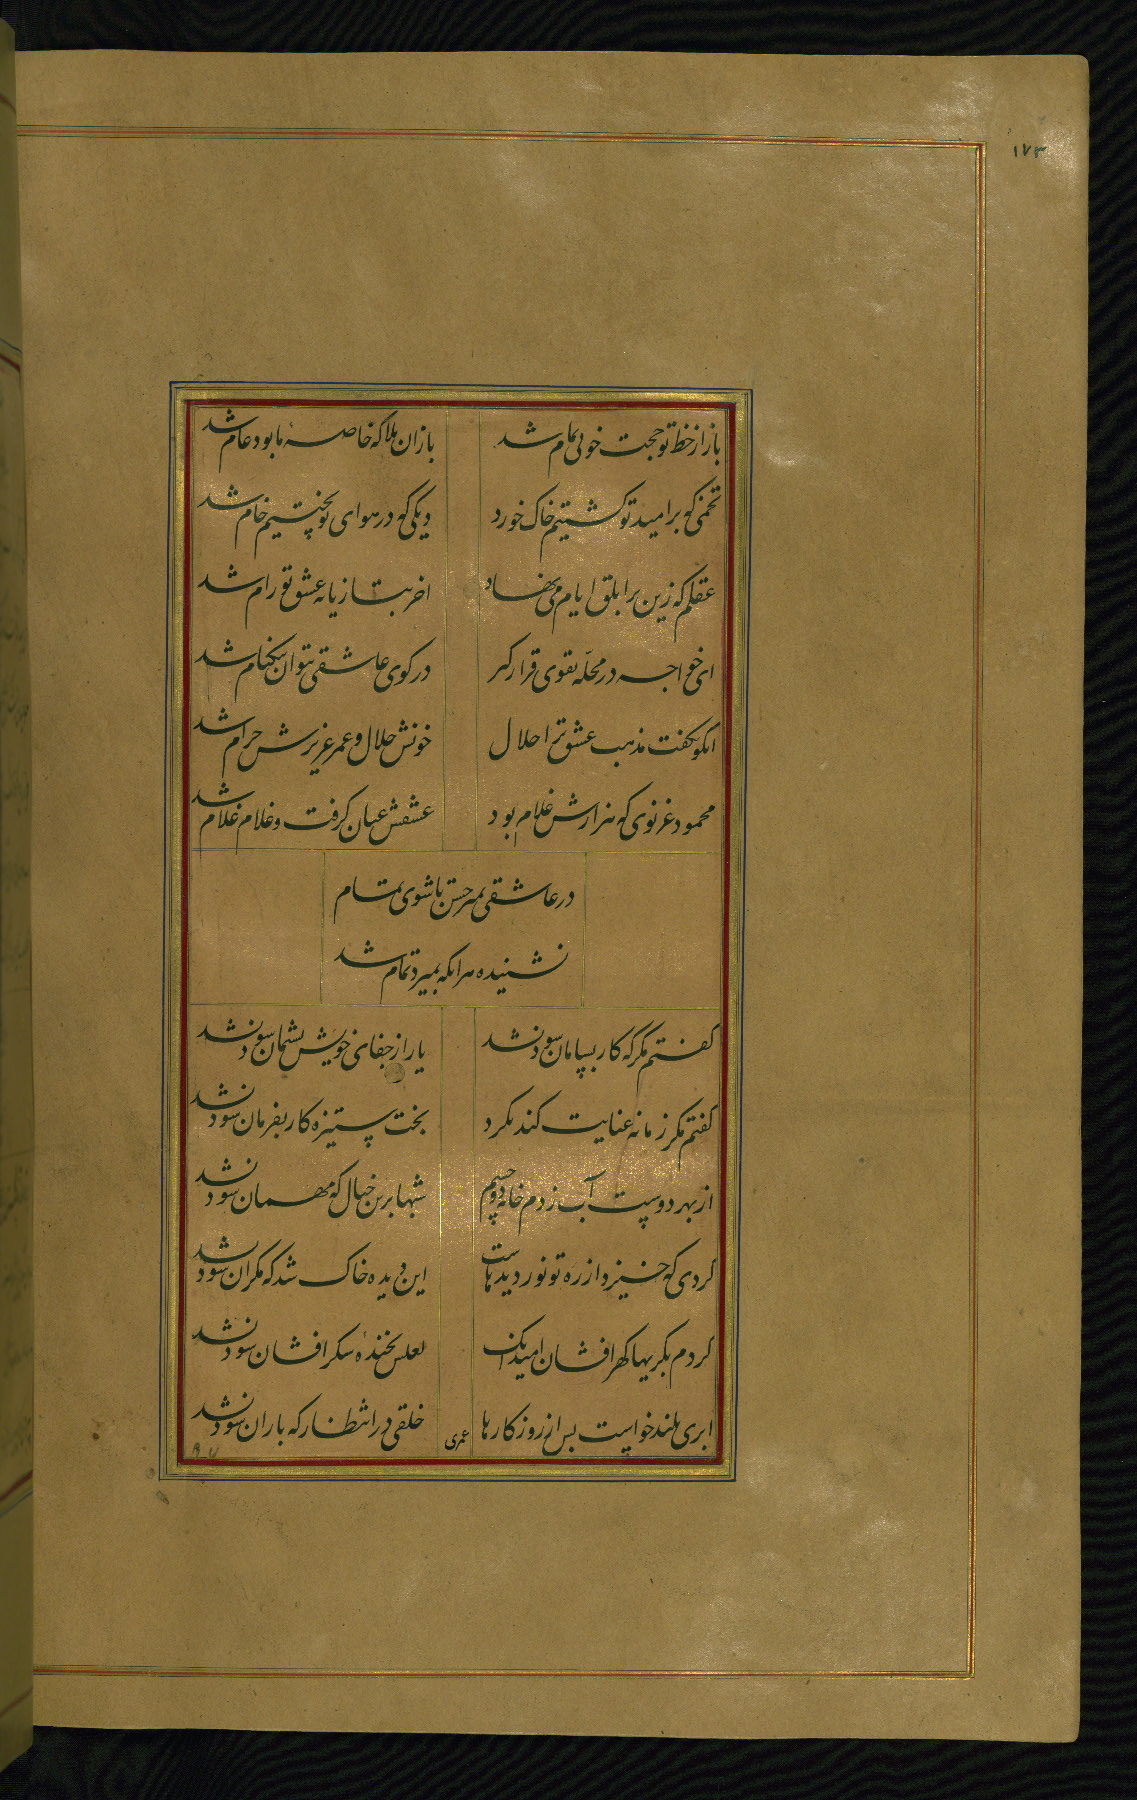 ۱۷۳
باز از خط تو حجت خوبی تمام شد باز ان بلا که خاصهٔ ما بود عام شد
تخمی که بر امید تو کشتیم خاک خورد دیکی که در هوای تو پختیم خام شد
عقلم که زین بر ابلق ایام می نهاد اخر بتازیانه عشق تو رام شد
ای خواجه در محلّه تقوی قرار کیر در کوی عاشقی نتوان نیکنام شد
انکو نکفت مذهب عشق ترا حلال خونش حلال و عمر عزیزش حرام شد
محمود غزنوی که هزارش غلام بود عشقش عنان کرفت و غلام غلام شد
در عاشقی بمیر حسن تا شوی تمام
نشنیده هرانکه بمیرد تمام شد
کفتم مکر که کار بسامان شود نشد یار از جفای خویش پشیمان شود نشد
کفتم مکر زمانه عنایت کند نکرد بخت ستیزه کار بفرمان شود نشد
از بهر دوست آب زدم خانه دو چشم شبها برین خیال که مهمان شود نشد
کردی که خیزد از ره تو نور دیدهاست این دیده خاک شد که مکر ان شود نشد
کردم بکریها کهر افشان امید انک لعلش بخنده شکر افشان شود نشد
ابری بلند خواست پس از روزکارها خلقی در انتظار که باران شود نشد
عمری